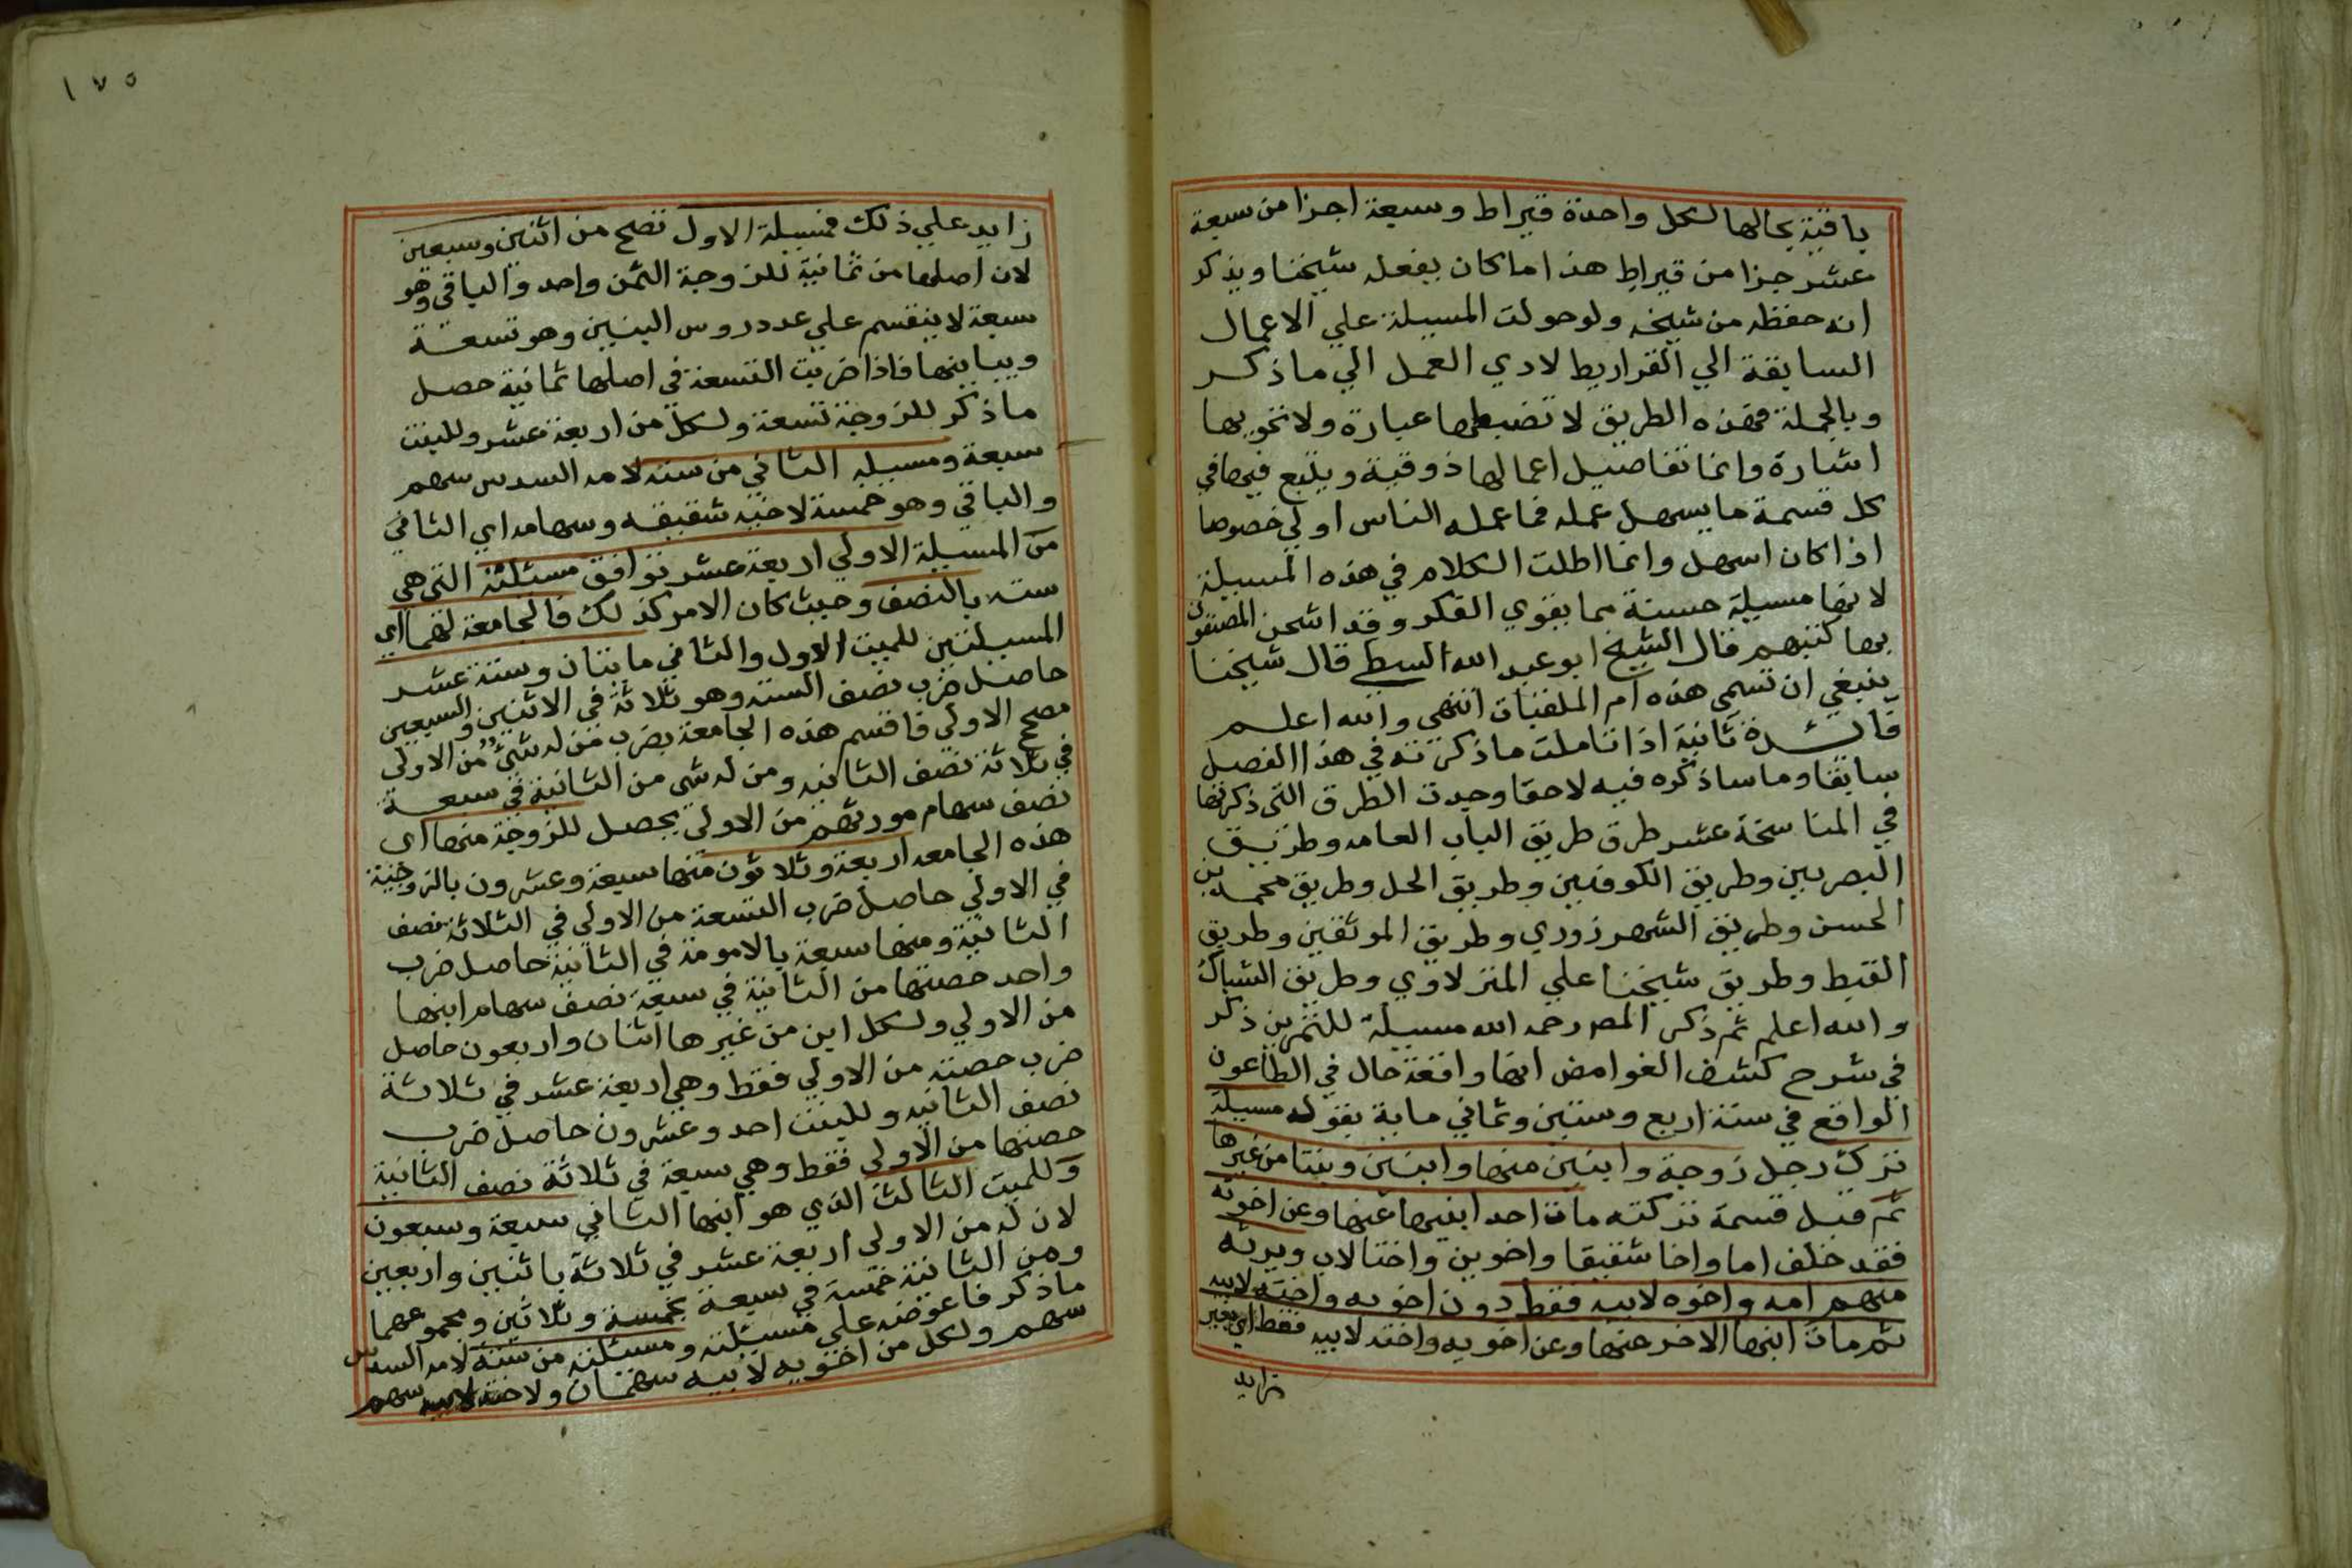 باقية بحالها لكل واحدة قيراط وسبعة اجزا من سبعة
عشر جزا من قيراط هذا ما كان يفعله شيخنا ويذكر
انه حفظه من شيخه ولو حولت المسيلة علي الاعمال
السابقة الي القراريط لادي العمل الي ما ذكر
وبالجملة فهذه الطريق لا تضبطها عبارة ولا تحويها
اشارة وانما تفاصيل اعمالها ذوقية ويتبع فيها في
كل قسمة ما يسهل عمله فما عمله الناس اولي خصوصا
اذا كان اسهل وانما اطلت الكلام في هذه المسيلة
لانها مسيلة حسنة مما يقوي الفكر وقد اشحن المصنفون
بها كتبهم قال الشيخ ابو عبد الله السبطي قال شيخنا
ينبغي ان تسمي هذه ام الملقبات انتهي والله اعلم
فائدة ثانية اذا تاملت ما ذكرته في هذا الفصل
سابقا وما ساذكره فيه لاحقا وجدت الطرق التي ذكرتها
في المناسخة عشر طرق طريق الباب العامه وطريق
البصريين وطريق الكوفيين وطريق الحل وطريق محمد بن
الحسن وطريق الشهرزوري وطريق الموثقين وطريق
القبط وطريق شيخنا علي المنزلاوي وطريق الشباك
والله اعلم ثم ذكر المص رحمه الله مسيلة للتمرين ذكر
في شرح كشف الغوامض انها واقعة حال في الطاعون
الواقع في سنة اربع وستين وثماني ماية بقوله مسيلة
ترك رجل زوجة وابنين منها وابنين وبنتا من غيرها
ثم قبل قسمة تركته مات احد ابنيها عنها وعن اخوته
فقد خلف اما واخا شقيقا واخوين واختا لاب ويرثه
منهم امه واخوه لابيه فقط دون اخويه واخته لابيه
ثم مات ابنها الاخر عنها وعن اخويه واخته لابيه فقط اي بغير
زايد
١٧٥
زايد علي ذلك فمسيلة الاول تصح من اثنين وسبعين
لان اصلها من ثمانية للزوجة الثمن واحد والباقي وهو
سبعة لا ينقسم علي عدد روس البنين وهو تسعة
ويباينها فاذا ضربت التسعة في اصلها ثمانية حصل
ما ذكر للزوجة تسعة ولكل من اربعة عشر وللبنت
سبعة ومسيله الثاني من سته لامه السدس سهم
والباقي وهو خمسة لاخيه شقيقه وسهامه اي الثاني
من المسيلة الاولي اربعة عشر توافق مسئلته التي هي
سته بالنصف وحيث كان الامر كذلك فالجامعة لهما اي
المسيلتين للميت الاول والثاني مايتان وستة عشر
حاصل ضرب نصف الستة وهو ثلاثة في الاثنين والسبعين
مصح الاولي فاقسم هذه الجامعة بضرب من له شي من الاولي
في ثلاثة نصف الثانيه ومن له شي من الثانية في سبعة
نصف سهام مورثهم من الاولي يحصل للزوجة منها اي
هذه الجامعه اربعة وثلاثون منها سبعة وعشرون بالزوجية
في الاولي حاصل ضرب التسعة من الاولي في الثلاثة نصف
الثانية ومنها سبعة بالامومة في الثانية حاصل ضرب
واحد حصتها من الثانية في سبعة نصف سهام ابنها
من الاولي ولكل ابن من غيرها اثنان واربعون حاصل
ضرب حصته من الاولي فقط وهي اربعة عشر في ثلاثة
نصف الثانيه وللبنت احد وعشرون حاصل ضرب
حصتها من الاولي فقط وهي سبعة في ثلاثة نصف الثانية
وللميت الثالث الذي هو ابنها الثاني سبعة وسبعون
لان له من الاولي اربعة عشر في ثلاثة باثنين واربعين
ومن الثانية خمسة في سبعة بخمسة وثلاثين ومجموعهما
ما ذكر فاعرضه علي مسيلته ومسئلته من ستة لامه السدس
سهم ولكل من اخويه لابيه سهمان ولاخته لابيه سهم